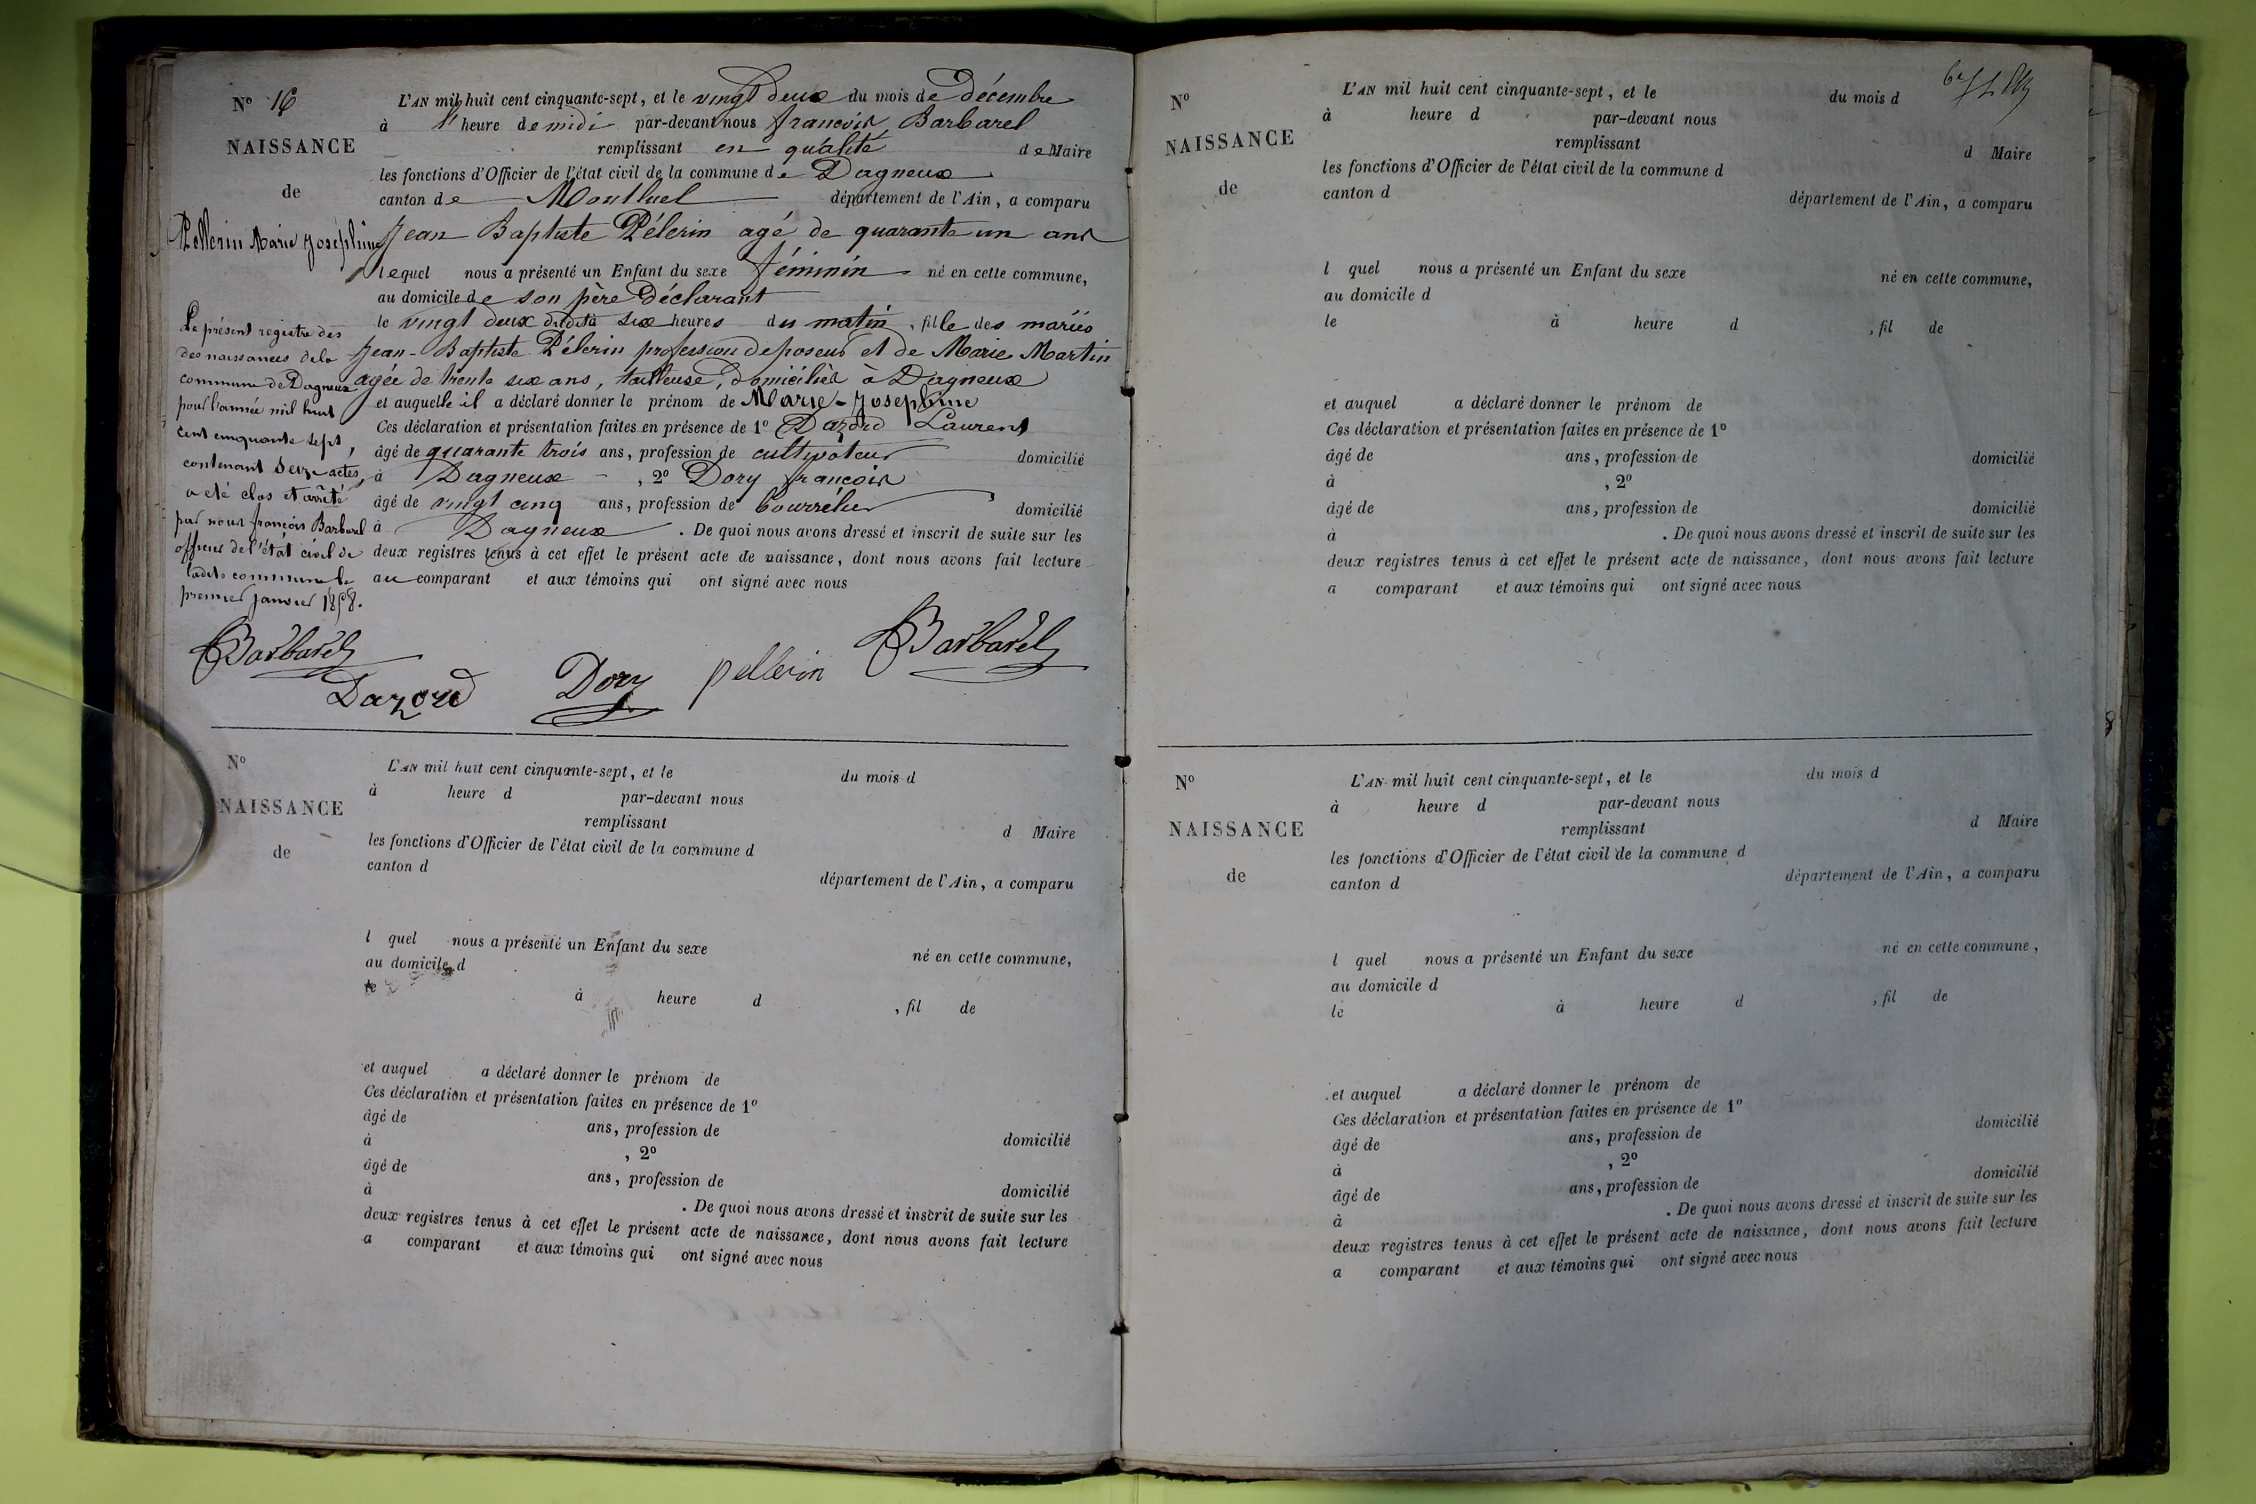 N° 16
NAISSANCE
de
Pellerin Marie Joséphine
L'AN mil huit cent cinquante-sept, et le vingt deux du mois de décembre
à l'heure de midi par-devant nous françois Barbarel
remplissant en qualité de Maire
les fonctions d'Officier de l'état civil de la commune de Dagneux
canton de Montluel département de l'Ain, a comparu
Jean Baptiste Pélerin agé de quarante un ans
lequel nous a présenté un Enfant du sexe féminin né en cette commune,
au domicile de son père Déclarant
le vingt deux dudit à six heures du matin, fille des mariés
Jean-Baptiste Pélerin profession de poseur et de Marie Martin
agée de trente six ans, tailleuse, domiciliés à Dagneux
et auquelle il a déclaré donner le prénom de Marie-Joséphine
Ces déclaration et présentation faites en présence de 1° Dazord Laurent
âgé de quarante trois ans, profession de cultivateur domicilié
à Dagneux, 2° Dory françois
âgé de vingt cinq ans, profession de bourrelier domicilié
à Dagneux. De quoi nous avons dressé et inscrit de suite sur les
deux registres tenus à cet effet le présent acte de naissance, dont nous avons fait lecture
au comparant et aux témoins qui ont signé avec nous
Le présent registre des
des naissances de la
commune de Dagneux
pour l'année mil huit
cent cinquante sept,
contenant seize actes,
a été clos et arrêté
par nous françois Barbarel
officier de l'état civil de
ladite commune le
premier janvier 1858.
Barbarel
Dazord Dory pellerin Barbarel
N°
NAISSANCE
de
L'AN mil huit cent cinquante-sept, et le du mois d
à heure d par-devant nous
remplissant d Maire
les fonctions d'Officier de l'état civil de la commune d
canton d département de l'Ain, a comparu
l quel nous a présenté un Enfant du sexe né en cette commune,
au domicile d
le à heure d , fil de
et auquel a déclaré donner le prénom de
Ces déclaration et présentation faites en présence de 1°
âgé de ans, profession de domicilié
à , 2°
âgé de ans, profession de domicilié
à . De quoi nous avons dressé et inscrit de suite sur les
deux registres tenus à cet effet le présent acte de naissance, dont nous avons fait lecture
a comparant et aux témoins qui ont signé avec nous
N°
NAISSANCE
de
L'AN mil huit cent cinquante-sept, et le du mois d
à heure d par-devant nous
remplissant d Maire
les fonctions d'Officier de l'état civil de la commune d
canton d département de l'Ain, a comparu
l quel nous a présenté un Enfant du sexe né en cette commune,
au domicile d
le à heure d , fil de
et auquel a déclaré donner le prénom de
Ces déclaration et présentation faites en présence de 1°
âgé de ans, profession de domicilié
à , 2°
âgé de ans, profession de domicilié
à . De quoi nous avons dressé et inscrit de suite sur les
deux registres tenus à cet effet le présent acte de naissance, dont nous avons fait lecture
a comparant et aux témoins qui ont signé avec nous
N°
NAISSANCE
de
L'AN mil huit cent cinquante-sept, et le du mois d
à heure d par-devant nous
remplissant d Maire
les fonctions d'Officier de l'état civil de la commune d
canton d département de l'Ain, a comparu
l quel nous a présenté un Enfant du sexe né en cette commune,
au domicile d
le à heure d , fil de
et auquel a déclaré donner le prénom de
Ces déclaration et présentation faites en présence de 1°
âgé de ans, profession de domicilié
à , 2°
âgé de ans, profession de domicilié
à . De quoi nous avons dressé et inscrit de suite sur les
deux registres tenus à cet effet le présent acte de naissance, dont nous avons fait lecture
a comparant et aux témoins qui ont signé avec nous